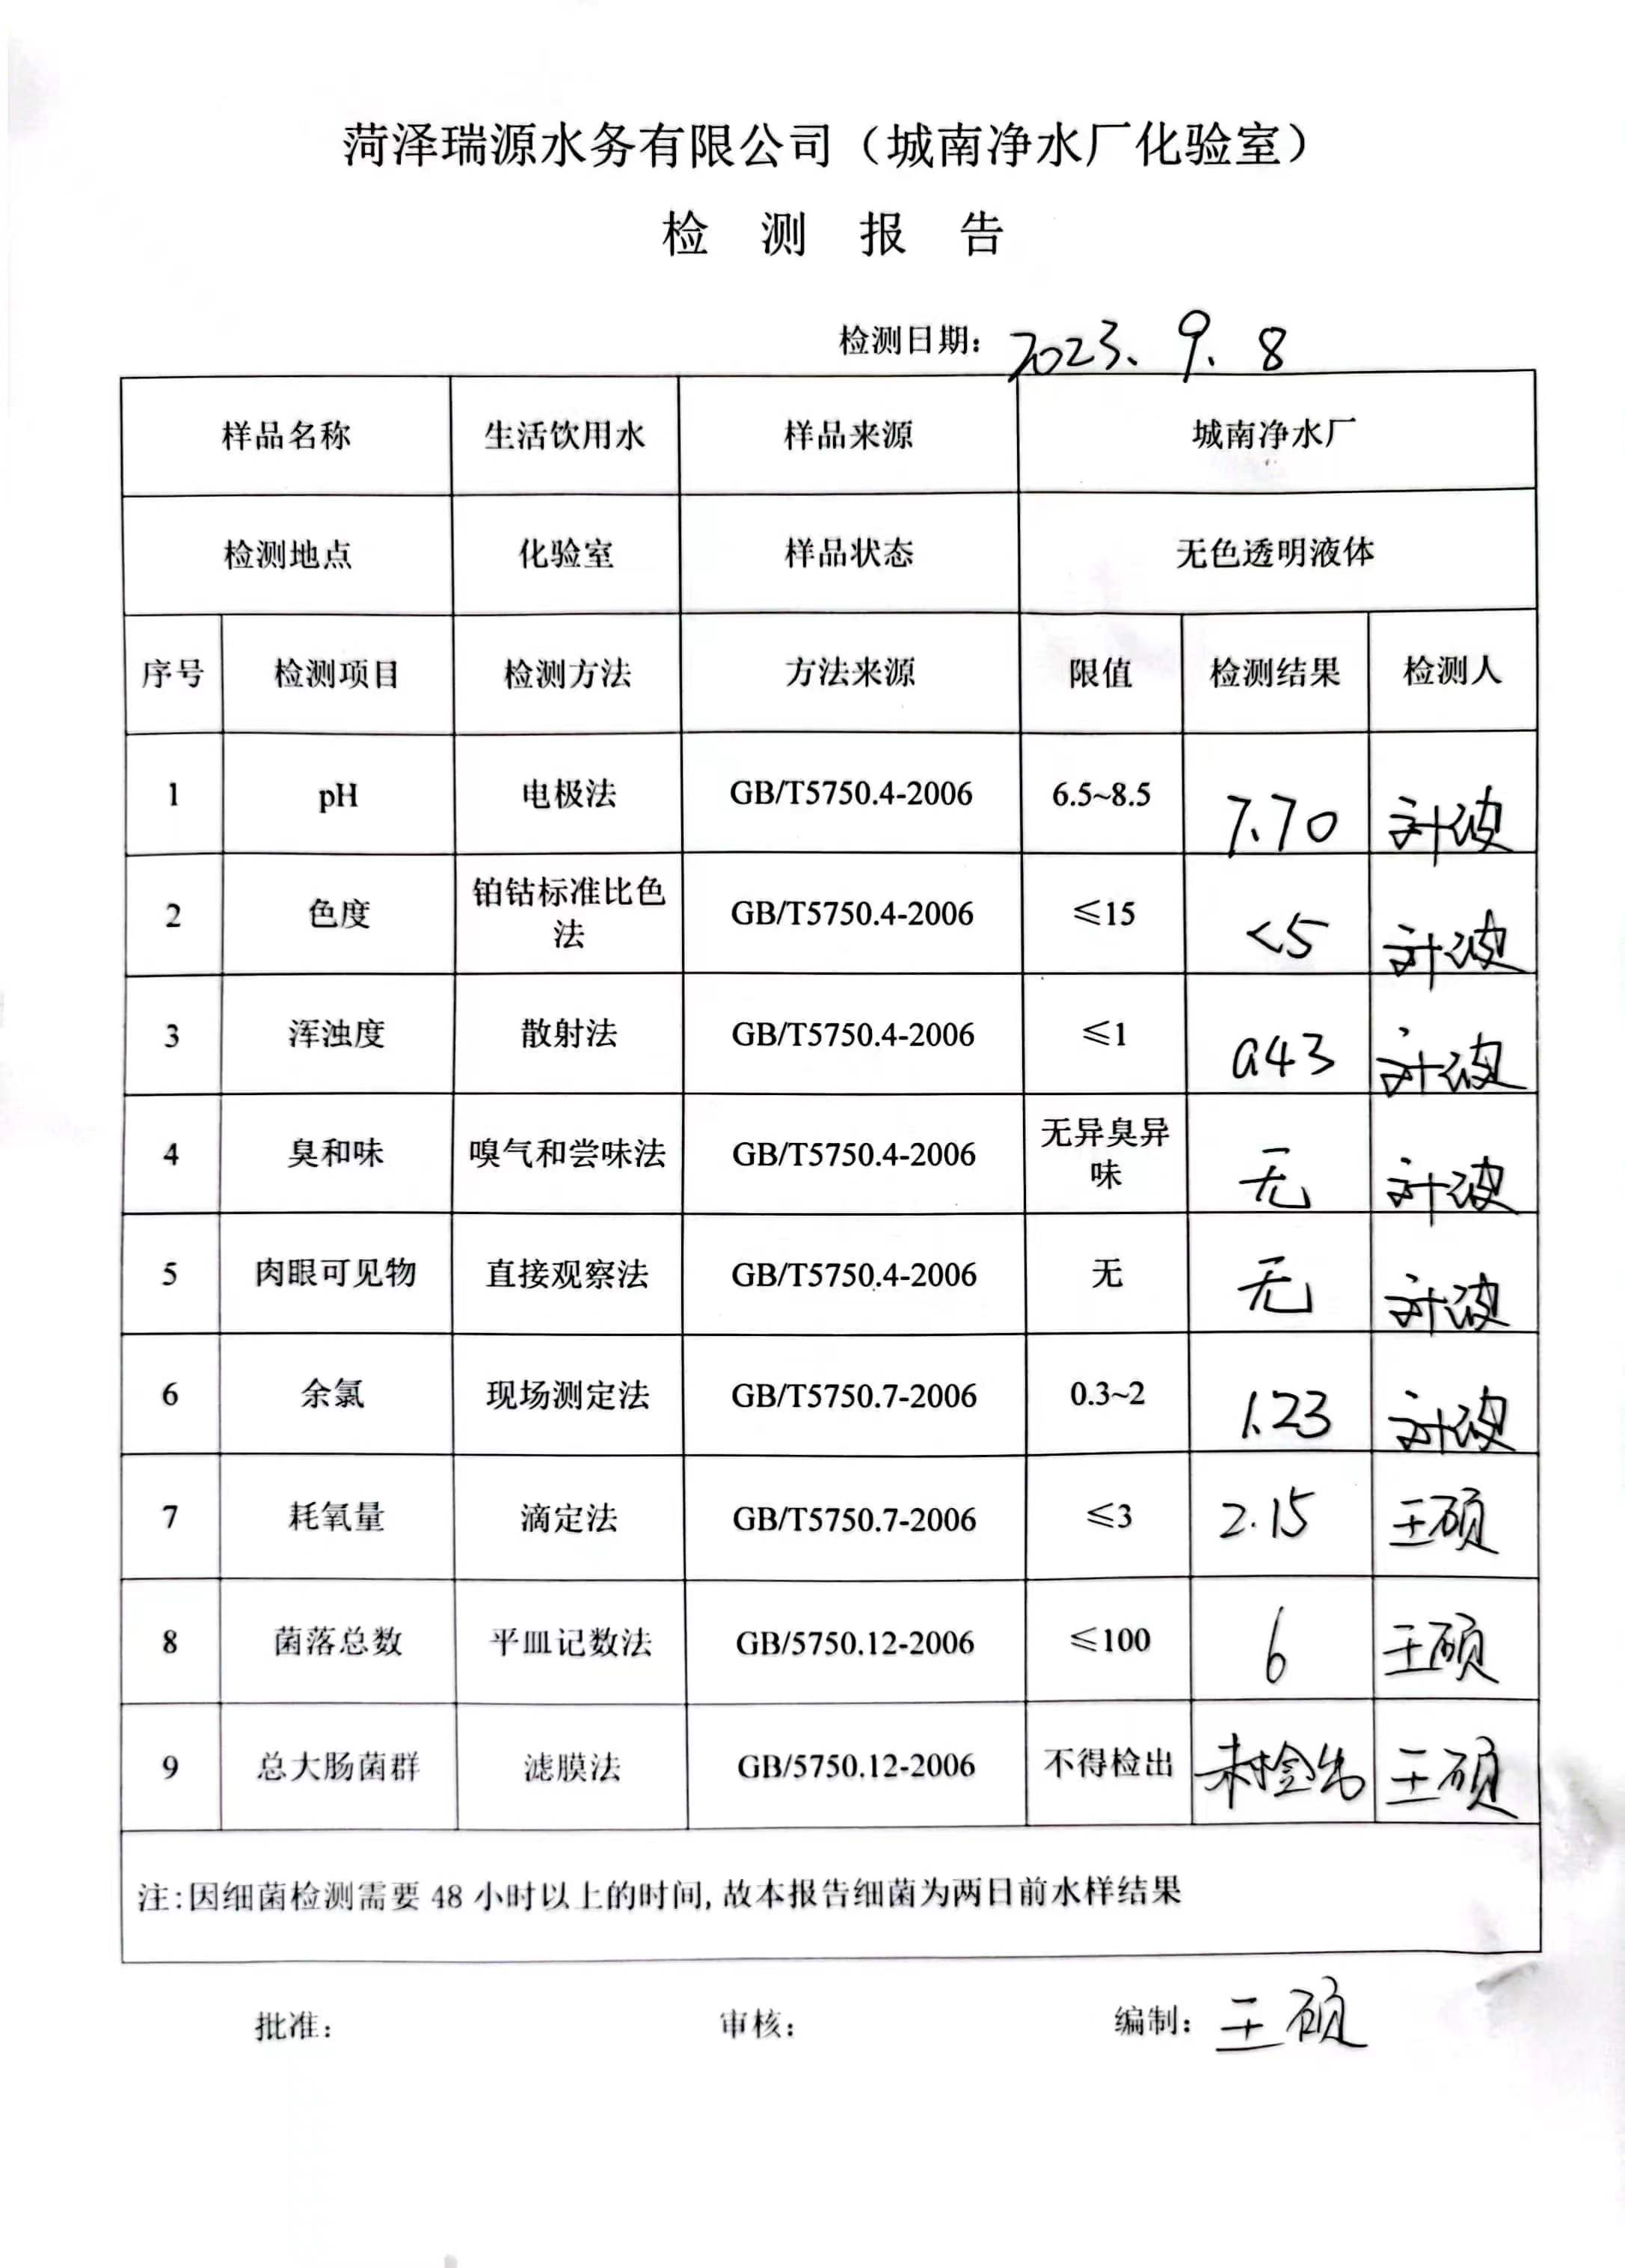 菏泽瑞源水务有限公司（城南净水厂化验室）
检 测 报 告
检测日期： 2023、9、8
样品名称 生活饮用水 样品来源 城南净水厂
检测地点 化验室 样品状态 无色透明液体
序号 检测项目 检测方法 方法来源 限值 检测结果 检测人
1 pH 电极法 GB/T5750.4-2006 6.5~8.5 7.70
2 色度 铂钴标准比色法 GB/T5750.4-2006 ≤15 <5
3 浑浊度 散射法 GB/T5750.4-2006 ≤1 0.43
4 臭和味 嗅气和尝味法 GB/T5750.4-2006 无异臭异味 无
5 肉眼可见物 直接观察法 GB/T5750.4-2006 无 无
6 余氯 现场测定法 GB/T5750.7-2006 0.3~2 1.23
7 耗氧量 滴定法 GB/T5750.7-2006 ≤3 2.15 王硕
8 菌落总数 平皿记数法 GB/5750.12-2006 ≤100 6 王硕
9 总大肠菌群 滤膜法 GB/5750.12-2006 不得检出 未检出 王硕
注:因细菌检测需要 48 小时以上的时间,故本报告细菌为两日前水样结果
批准： 审核： 编制： 王硕